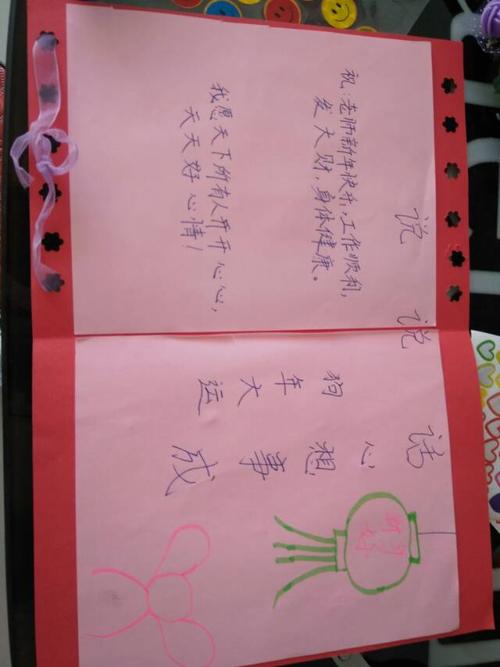 说说话
祝:老师新年快乐,工作顺利,
发大财,身体健康。
我愿天下所有人开开心心,
天天好心情!
狗年大运
心想事成
新年
好